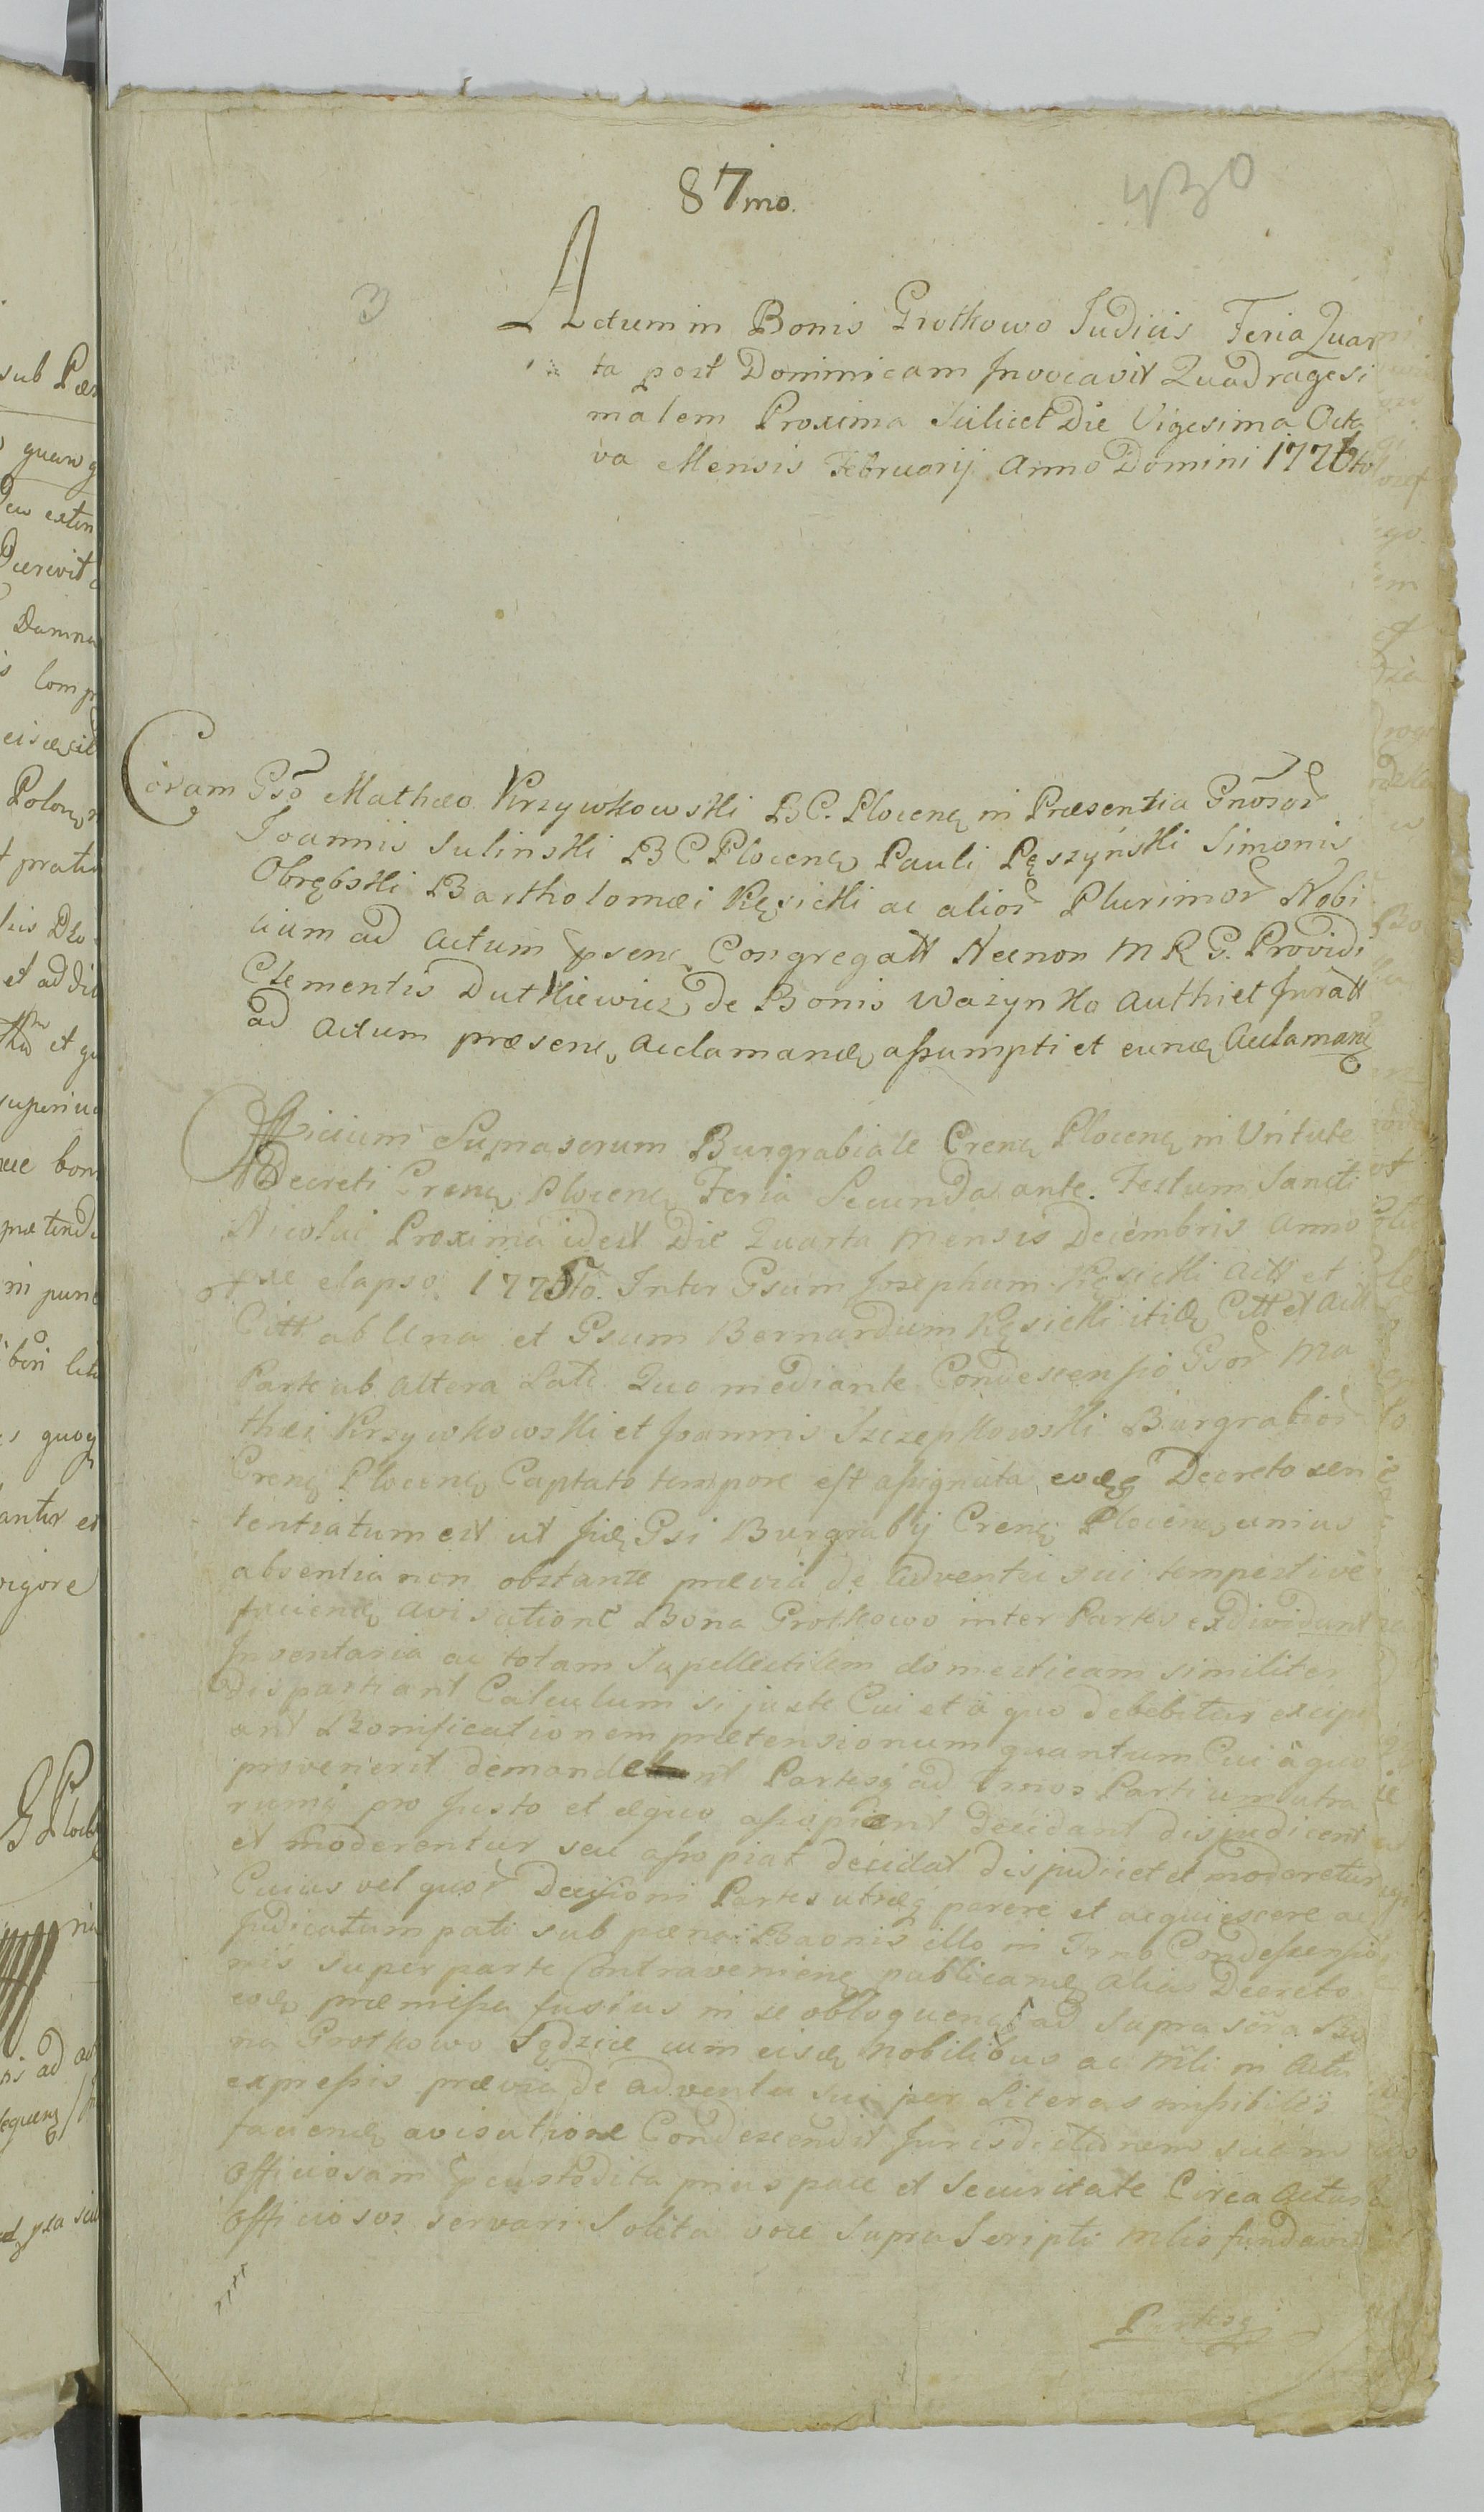 87mo.
430
3
Actum in Bonis Grotkowo Judiciis Feria Quar
ta post Dominicam Invocavit Quadragesi
malem Proxima Scilicet Die Vigesima Octa
va Mensis Februarij Anno Domini 1776to
Coram Gso Mathæo Krzywkowski BC. Plocen in Præsentia Gnosor
Joannis Sulinski BC Plocen Pauli Pęszyński Simonis
Obrębski Bartholomæi Kęsicki ac alior Plurimor Nobi
lium ad Actum psen Congregatt Necnon M R G. Providi
Clementis Dutkiewicz de Bonis Wazynko Authi et Juratt
ad Actum præsen Acclamand assumpti et eund Acclaman
Officium Suprascrum Burgrabiale Cren Plocen in Virtute
Decreti Cren Plocen Feria Secunda ante Festum Sancti
Nicolai Proxima idest Die Quarta Mensis Decembris Anno
elapso 1775to. Inter Gsum Josephum Kęsicki Actt et
Citt ab Una et Gsum Bernardum Kęsicki itid Citt et Actt
Parte ab Altera Lati Quo mediante Condescensio Gsor Ma
thæi Krzywkowski et Joannis Szczepkowski Burgrabior
Cren Plocen Captato tempore est assignata eodq Decreto sen
tentiatum est ut iid Gsi Burgrabij Cren Plocen unius
absentia non obstante prævia de adventu sui tempestivè
faciend avisatione Bona Grotkowo inter Partes exdividant
Inventaria ac totam Supellectilem domesticam similiter
dispartiant Calculum si juste Cui et à quo debebitur excipi
ant Bonificationem prætensionum quantum Cui à quo
provenerit demandent Partesq ad Tmos Partium utra
rumq pro justo et æquo assopiant decidant disjudicent
et moderentur seu assopiat decidat disjudicet et moderetur
Cuius vel quor Decisioni Partes utræq parere et acquiescere ac
Judicatum pati sub pæna Baonis illo in Tmno Condescensio
nis super parte Contravenien publicand alias Decreto
eod præmissa fusius in se obloquen ad supra scra Bo
na Grotkowo Sędzice cum eisd Nobilibus ac Mli in Actu
expressis prævia de adventu sui per Literas missibiles
faciend avisatione Condescendit Jurisdictionem suam
Officiosam pcustodita prius pace et securitate Circa Actus
Officiosos servari Solita voce Supra Scripti Mlis fundavit
Partesq